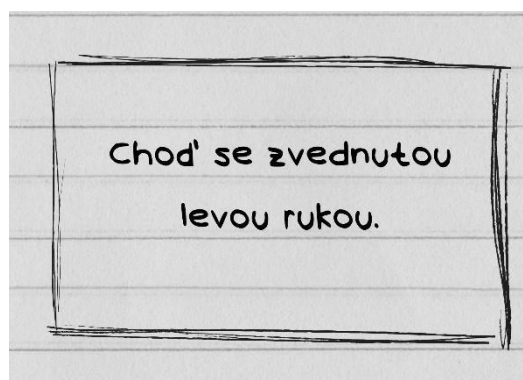 Choď se zvednutou
levou rukou.